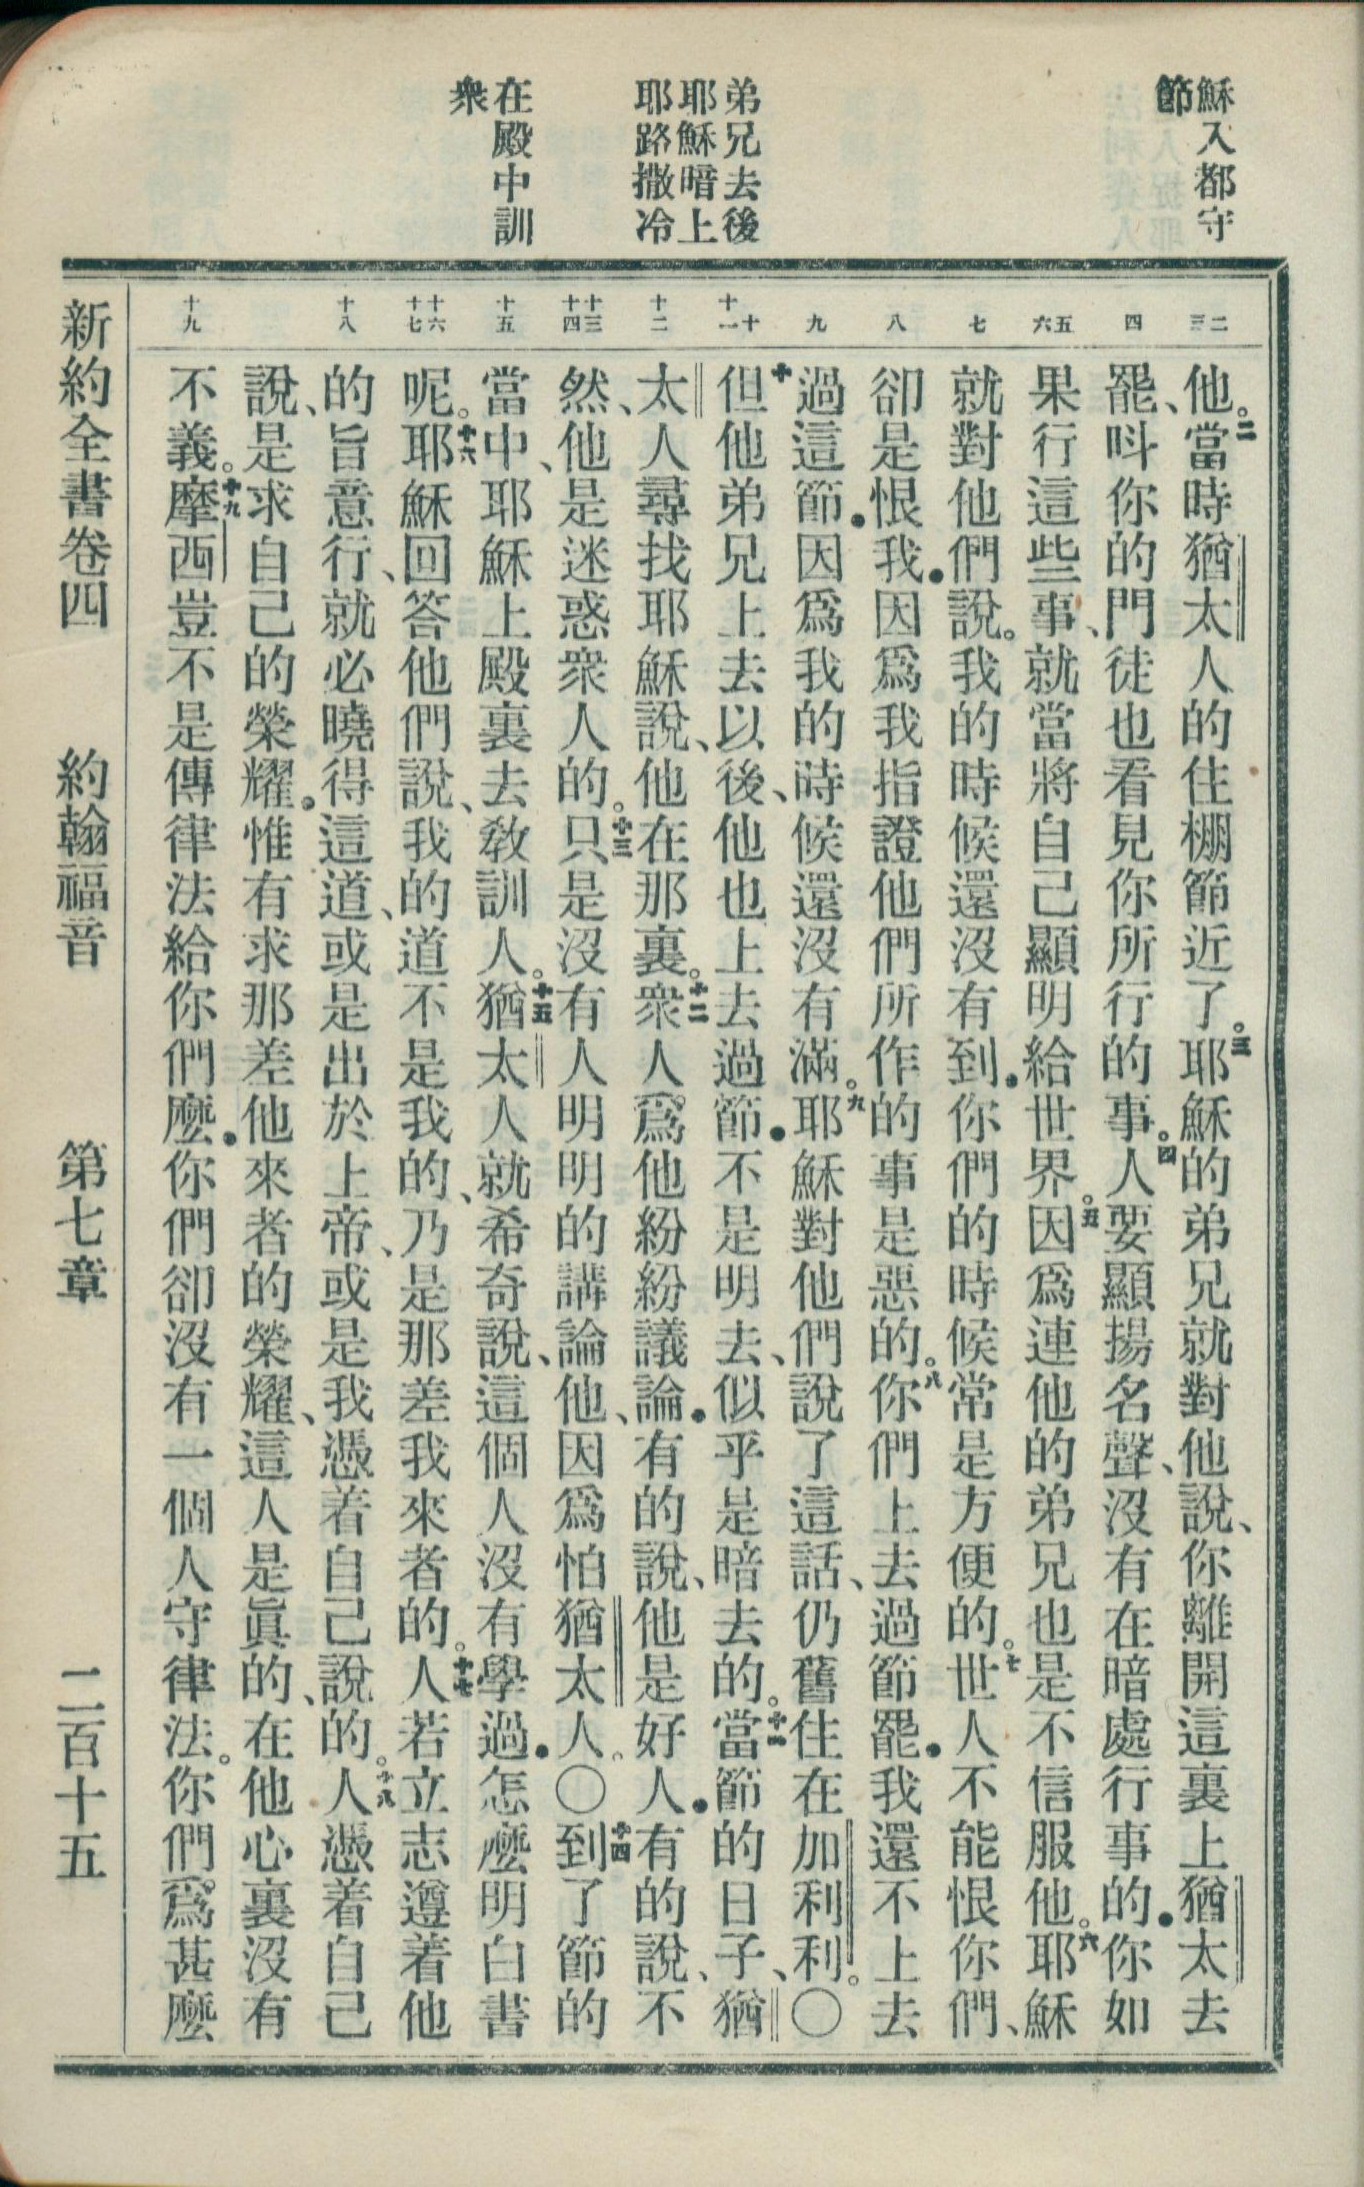 穌入都守
節
弟兄去後
耶穌暗上
耶路撒冷
在殿中訓
衆
二
三
四
五
六
七
八
九
十
十一
十二
十三
十四
十五
十六
十七
十八
十九
他。二當時猶太人的住棚節近了。三耶穌的弟兄就對他說、你離開這裏上猶太去
罷、呌你的門徒也看見你所行的事。四人要顯揚名聲、沒有在暗處行事的．你如
果行這些事、就當將自己顯明給世界。五因爲連他的弟兄也是不信服他。六耶穌
就對他們說。我的時候還沒有到．你們的時候常是方便的。七世人不能恨你們、
卻是恨我．因爲我指證他們所作的事是惡的。八你們上去過節罷．我還不上去
過這節．因爲我的時候還沒有滿。九耶穌對他們說了這話、仍舊住在加利利。〇
十但他弟兄上去以後、他也上去過節．不是明去、似乎是暗去的。十一當節的日子、猶
太人尋找耶穌說、他在那裏。十二衆人爲他紛紛議論．有的說、他是好人．有的說、不
然、他是迷惑衆人的。十三只是沒有人明明的講論他、因爲怕猶太人。〇十四到了節的
當中、耶穌上殿裏去敎訓人。十五猶太人就希奇說、這個人沒有學過．怎麼明白書
呢。十六耶穌回答他們說、我的道不是我的、乃是那差我來者的。十七人若立志遵着他
的旨意行、就必曉得這道、或是出於上帝、或是我憑着自己說的。十八人憑着自己
說、是求自己的榮耀．惟有求那差他來者的榮耀、這人是眞的、在他心裏沒有
不義。十九摩西豈不是傳律法給你們麼．你們卻沒有一個人守律法。你們爲甚麼
新約全書卷四 約翰福音 第七章 二百十五